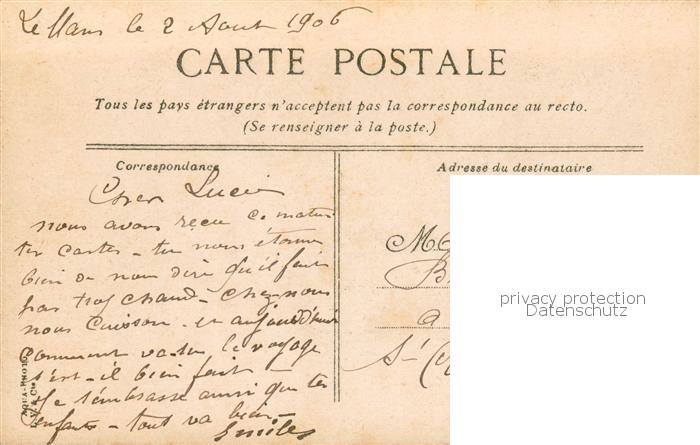 Le Mans le 2 Aout 1906
CARTE POSTALE
Tous les pays étrangers n'acceptent pas la correspondance au recto.
(Se renseigner à la poste.)
Correspondance
Cher Lucien
nous avons reçu ce matin
tes cartes - tu nous étonne
bien de nous dire qu'il fait
pas trop chaud - chez-nous
nous cuisson - et aujourd'hui
comment va-tu, le voyage
s'est-il bien fait
Je t'embrasse ainsi que tes
enfants - tout va bien -
Emiles
AQUA-PHOTO
L.V. & Cie
Adresse du destinataire
M
B
a
St
privacy protection
Datenschutz